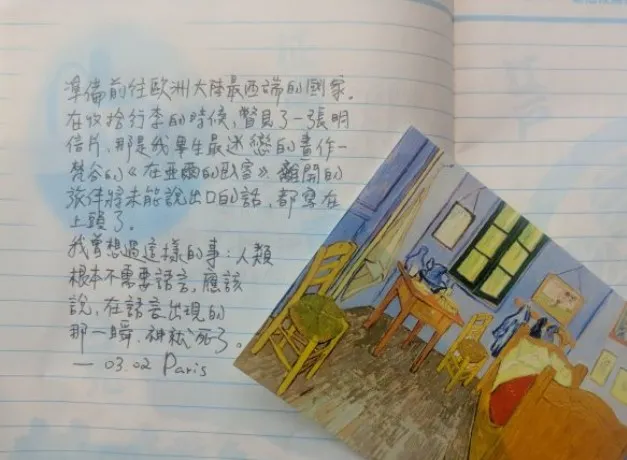 準備前往歐洲大陸最西端的國家。
在收拾行李的時候，瞥見了一張明
信片，那是我畢生最迷戀的畫作—
梵谷的《在亞爾的臥室》。離開的
旅伴將未能說出口的話，都寫在
上頭了。
我曾想過這樣的事：人類
根本不需要語言，應該
說，在語言出現的
那一瞬，神就死了。
— 03.02 Paris